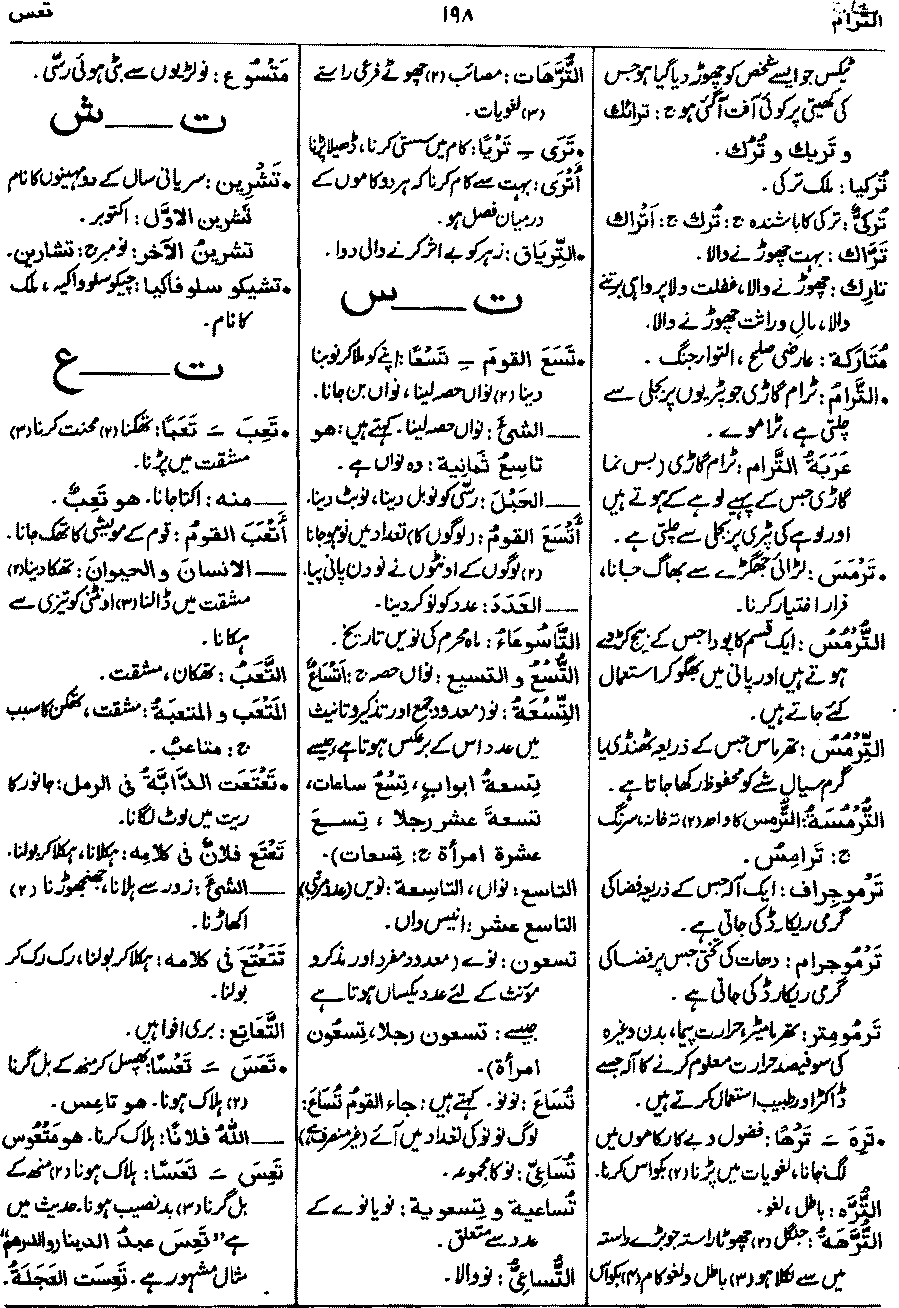 الترام
۱۹۸
تعس
ٹیکس جو ایسے شخص کو چھوڑ دیا گیا ہو جس
کی کھیتی پر کوئی آفت آگئی ہو ج: ترائك
و تَرِيك و تُرُك ۔
تُركيا: ملک ترکی ۔
تُركيٌّ: ترکی کا باشندہ ج: تُرك ج: أتراك
تَرَّاك: بہت چھوڑنے والا۔
تارِك: چھوڑنے والا، غفلت و لا پرواہی برتنے
والا، مالِ وراثت چھوڑنے والا۔
مُتَارَكة: عارضی صلح، التوار جنگ ۔
•التَّرامُ: ٹرام گاڑی جو پٹریوں پر بجلی سے
چلتی ہے، ٹراموے ۔
عَرَبَةُ التَّرام: ٹرام گاڑی (بس نما
گاڑی جس کے پہیے لوہے کے ہوتے ہیں
اور لوہے کی پٹری پر بجلی سے چلتی ہے ۔
•تَرْمَسَ: لڑائی جھگڑے سے بھاگ جانا،
فرار اختیار کرنا۔
التُّرْمُسُ: ایک قسم کا پودا جس کے بیج کڑوے
ہوتے ہیں اور پانی میں بھگو کر استعمال
کئے جاتے ہیں۔
التِّرْمُسُ: تھرماس جس کے ذریعہ ٹھنڈی یا
گرم سیال شے کو محفوظ رکھا جاتا ہے ۔
التُّرْمُسَةُ: التُّرمس کا واحد (۲) تہ خانہ، سرنگ
ج: تَرامِسُ ۔
تَرْموجِراف: ایک آلہ جس کے ذریعہ فضا کی
گرمی ریکارڈ کی جاتی ہے ۔
تَرْمُوجرام: دھات کی تختی جس پر فضا کی
گرمی ریکارڈ کی جاتی ہے ۔
تَرمُومِتر: تھرمامیٹر، حرارت پیما، بدن وغیرہ
کی سوفیصد حرارت معلوم کرنے کا آلہ جسے
ڈاکٹر اور طبیب استعمال کرتے ہیں ۔
•تَرِهَ ـَ تَرَهًا: فضول و بے کار کاموں میں
لگ جانا، لغویات میں پڑنا (۲) بکواس کرنا۔
التُّرَّه: باطل، لغو۔
التُّرَّهَةُ: جنگل (۲) چھوٹا راستہ جو بڑے راستہ
میں سے نکلا ہو (۳) باطل و لغو کام (۴) بکواس
التُّرَّهَات: مصائب (۲) چھوٹے فرعی راستے
(۳) لغویات ۔
•تَرَى ـِ تَرْيًا: کام میں سستی کرنا، ڈھیلا پڑنا
أَتْرَى: بہت سے کام کرنا کہ ہر دو کاموں کے
درمیان فصل ہو۔
•التِّرياق: زہر کو بے اثر کرنے والی دوا ۔
ت ـــ س
•تَسَعَ القومَ ـَ تَسْعًا: اپنے کو ملا کر نو بنا
دینا (۲) نواں حصہ لینا، نواں بن جانا۔
ـــ الشئَ: نواں حصہ لینا۔ کہتے ہیں: هو
تاسِعُ ثمانية: وہ نواں ہے ۔
ـــ الحَبْلَ: رسّی کو نو بل دینا، نو بٹ دینا۔
أَتْسَعَ القومُ: (لوگوں کا) تعداد میں نو ہو جانا
(۲) لوگوں کے اونٹوں نے نو دن پانی پیا۔
ـــ العَدَدَ: عدد کو نو کر دینا۔
التَّاسُوعَاءُ: ماہ محرم کی نویں تاریخ ۔
التُّسْعُ و التسيع: نواں حصہ ج: أتْسَاعٌ
التِّسْعَةُ: نو (معدود جمع اور تذکیر و تانیث
میں عدد اس کے برعکس ہوتا ہے، جیسے
تِسعةُ ابوابٍ، تِسْعُ ساعات،
تسعةَ عشر رجلا، تِسعَ
عشرةَ امرأة ج: تِسعات)۔
التاسع: نواں، التاسعة: نویں (عدد ترتیبی)
التاسعَ عشر: انیس واں۔
تسعون: نوے (معدود مفرد اور مذکر و
مؤنث کے لئے عدد یکساں ہوتا ہے
جیسے: تسعون رجلا، تِسعُون
امرأة)۔
تُسَاعَ: نو نو۔ کہتے ہیں: جاء القومُ تُسَاعَ:
لوگ نو نو کی تعداد میں آئے (غیر منصرف ہے)
تُسَاعِيّ: نو کا مجموعہ ۔
تُساعية و تِسعوية: نو یا نوے کے
عدد سے متعلق ۔
التُّساعِيُّ: نو والا۔
مَتْسُوع: نو لڑیوں سے بٹی ہوئی رسّی ۔
ت ـــ ش
•تَشْرِين: سریانی سال کے دو مہینوں کا نام
تَشرين الاوَّل: اکتوبر ۔
تشرينُ الآخر: نومبر ج: تشارين۔
•تشيكو سلوفاكيا: چیکوسلوواکیہ، ملک
کا نام۔
ت ـــ ع
•تَعِبَ ـَ تَعَبًا: تھکنا (۲) محنت کرنا (۳)
مشقت میں پڑنا۔
ـــ منه: اکتا جانا۔ هو تَعِبٌ ۔
أَتْعَبَ القومُ: قوم کے مویشی کا تھک جانا۔
ـــ الانسانَ و الحيوانَ: تھکا دینا (۲)
مشقت میں ڈالنا (۳) اونٹنی کو تیزی سے
ہکانا۔
التَّعَبُ: تھکان، مشقت ۔
المَتْعَب و المتعبة: مشقت، تھکن کا سبب
ج: متاعبُ ۔
•تَعْتَعَت الدَّابَّةُ فى الرمل: جانور کا
ریت میں لوٹ لگانا۔
تَعْتَع فلانٌ فى كلامه: ہکلانا، ہکلا کر بولنا۔
ـــ الشئَ: زور سے ہلانا، جھنجھوڑنا (۲)
اکھاڑنا۔
تَتَعْتَع فى كلامه: ہکلا کر بولنا، رک رک کر
بولنا۔
التَّعاتِع: بری افواہیں ۔
•تَعَسَ ـَ تَعْسًا: پھسل کر منھ کے بل گرنا
(۲) ہلاک ہونا۔ هو تاعِس ۔
ـــ اللهُ فلانًا: ہلاک کرنا۔ هو مَتْعُوس
تَعِسَ ـَ تَعَسًا: ہلاک ہونا (۲) منھ کے
بل گرنا (۳) بد نصیب ہونا۔ حدیث میں
ہے "تَعِسَ عبدُ الدينار والدرهم"
مثال مشہور ہے ۔ تَعِست العَجَلَةُ۔